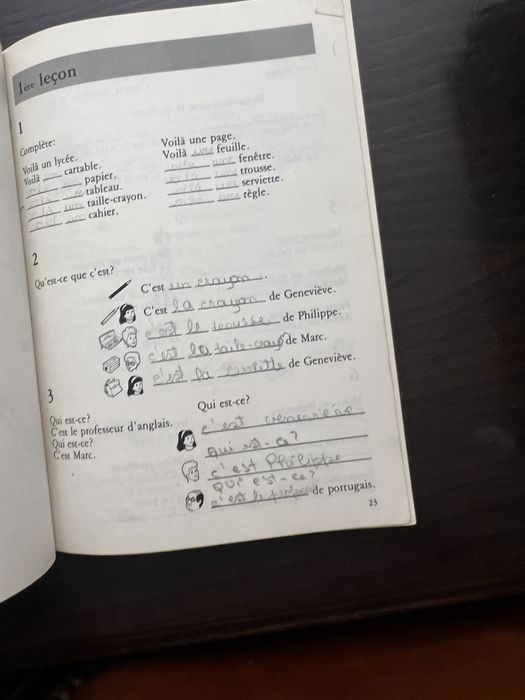 1ère leçon
1
Complète:
Voilà un lycée.
Voilà un cartable.
voilà un papier.
voilà un tableau.
voilà un taille-crayon.
voilà un cahier.
Voilà une page.
Voilà une feuille.
voilà une fenêtre.
voilà une trousse.
voilà une serviette.
voilà une règle.
2
Qu'est-ce que c'est?
C'est un crayon.
C'est la crayon de Geneviève.
c'est la de Philippe.
c'est la de Marc.
c'est la de Geneviève.
3
Qui est-ce?
C'est le professeur d'anglais.
Qui est-ce?
C'est Marc.
Qui est-ce?
c'est
qui est-ce?
c'est Philippe
QUI est-ce?
c'est le de portugais.
23